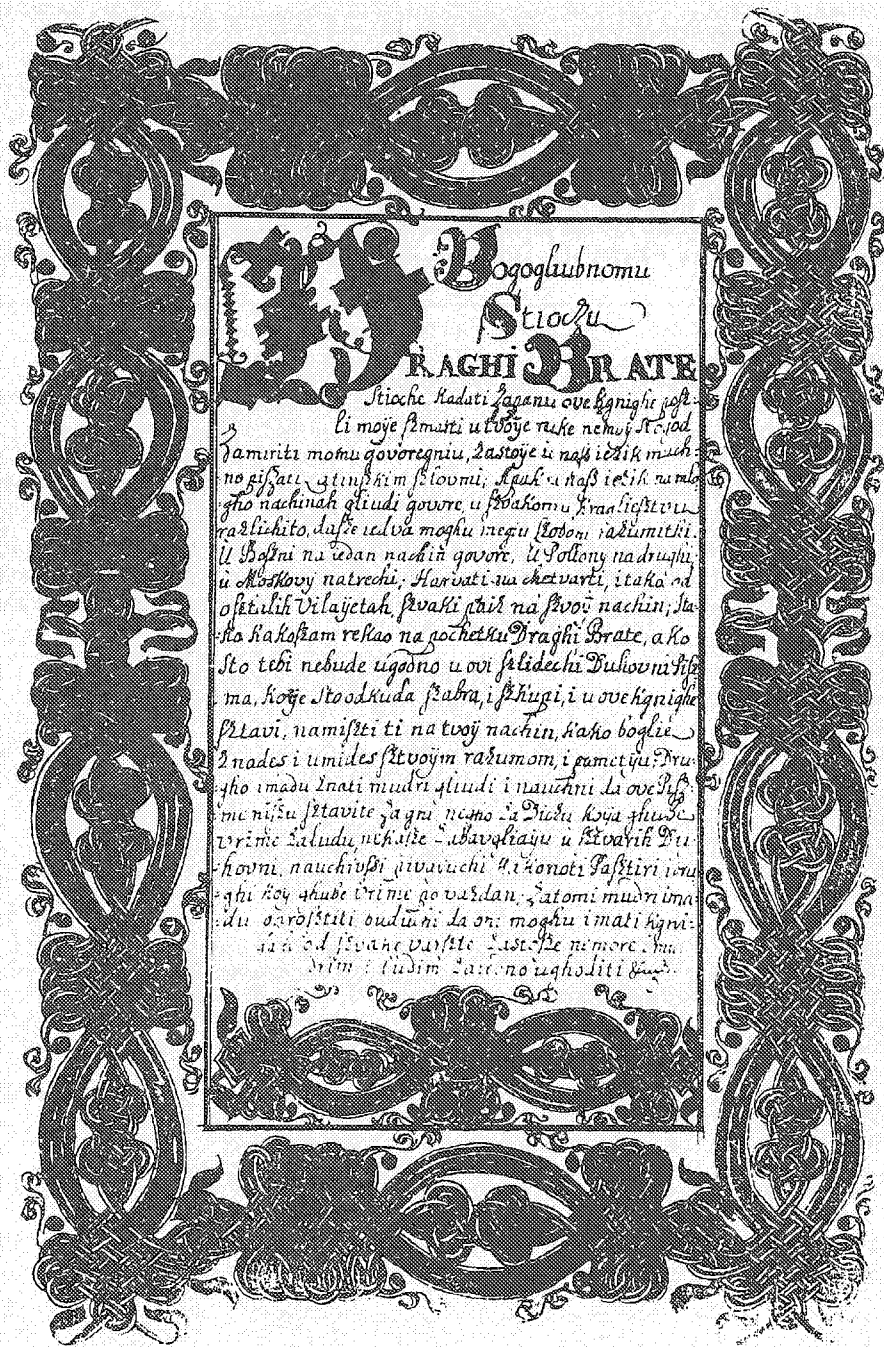 Bogogliubnomu
Stiočzu
DRAGHI BRATE
Stioche kadati zapanu ove kgnighe posz-
li moÿe szmarti u tvoÿe ruke nemoÿ od
zamiriti momu govoregniu, zastoÿe u nasz iezik much-
no piszati szlovmi; Apak u nasz iezik na mlo-
gho nachinah gliudi govore, u szvakomu kragliesztvu
razlichito, dasze iedva moghu megu szobom razumitki.
U Boszni na iedan nachin govore, U Pollony na drughi
u Moskovy natrechi; Harvati na chetvarti, i tako od
osztalih Vilaÿetah, szvaki na szvoÿ nachin;
kakoszam rekao na pochetku Draghi Brate, ako
sto tebi nebude ugodno u ovi szlidechi Duhovni Pisz-
ma, koÿe sto odkuda szabra, i szkupi, i u ove kgnighe
sztavi, namiszti ti na tvoÿ nachin, kako boglie
znades i umides sztvoÿm razumom, i pametÿu; Dru-
gho imadu znati mudri gliudi i nauchni da ove Pisz-
me niszu sztavite za gni nego za Diczu koya ghube
vrime zaludu nekasze zabavgliaÿu u sztvarih Du-
hovni, nauchivssi pivaiuchi kakonoti Pasztiri i dru-
ghi koÿ ghube vrime po vazdan; zatomi mudri ima-
du oproisztiti buduchi da oni moghu imati kgni-
od szvake varszte zastosze nemore
ughoditi